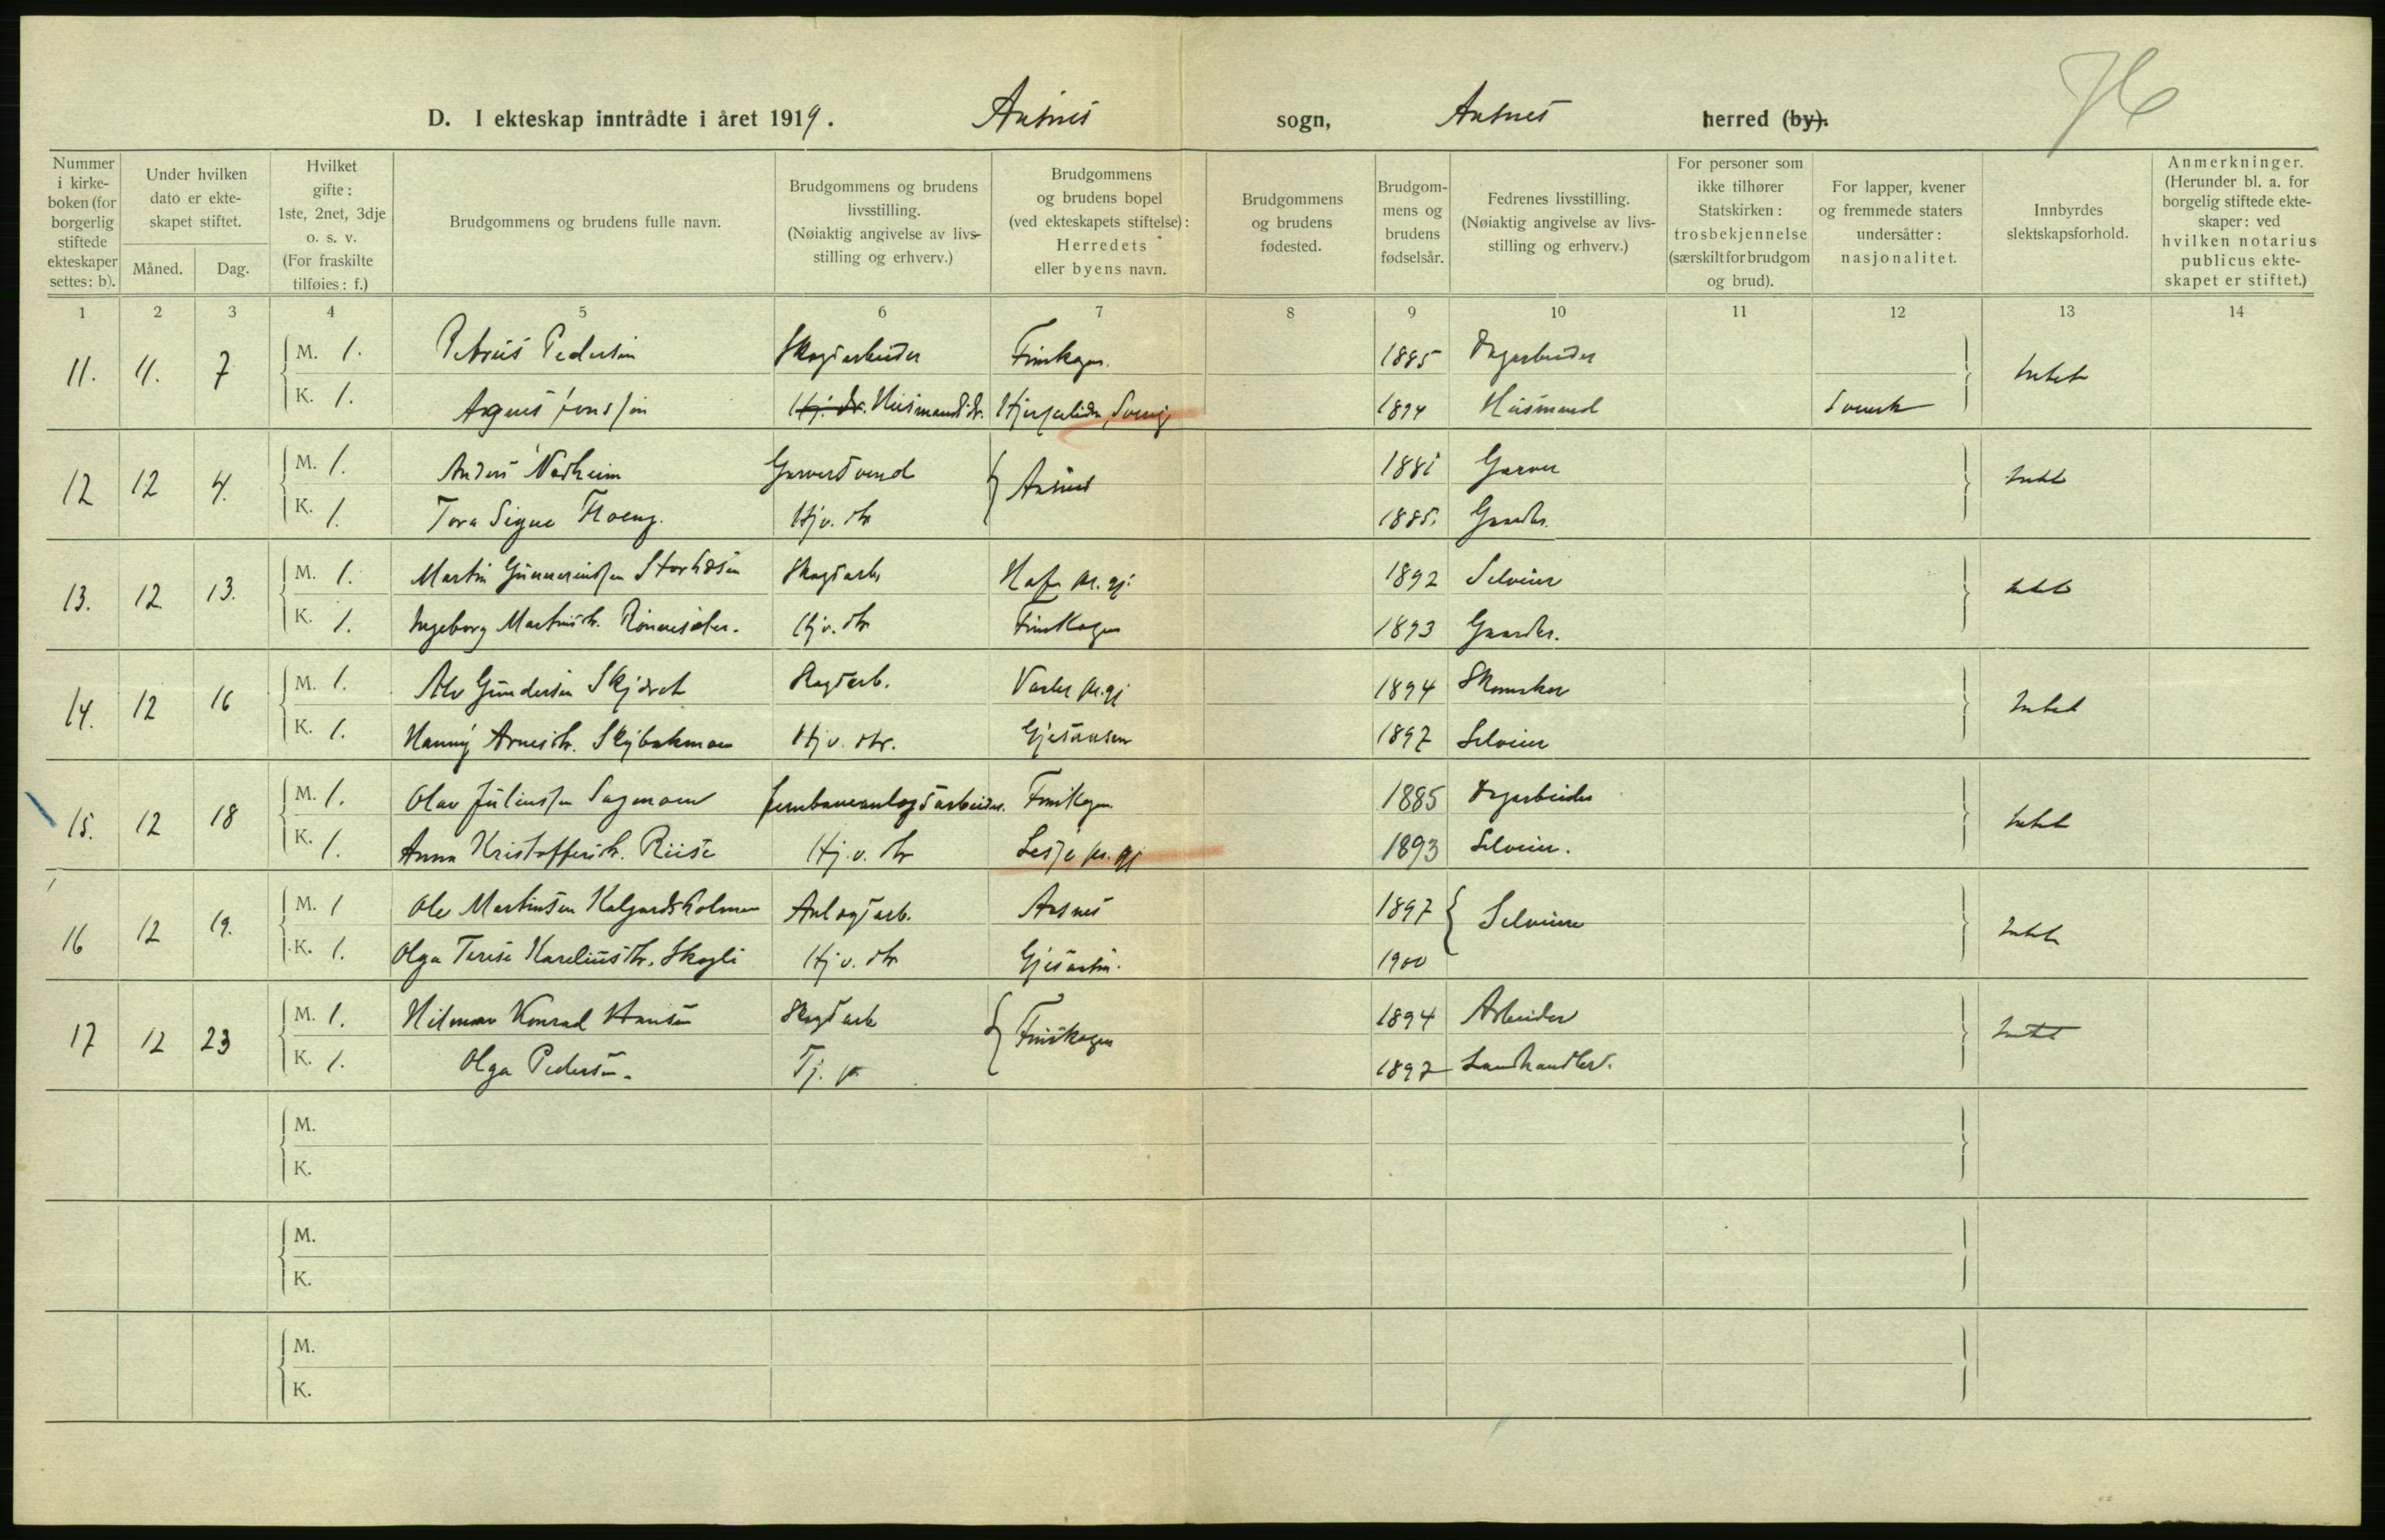 D. I ekteskap inntrådte i året 1919. Aasnes sogn, Aasnes herred (by).
Nummer i kirkeboken (for borgerlig stiftede ekteskaper settes: b).
Under hvilken dato er ekteskapet stiftet.
Måned. Dag.
Hvilket gifte: 1ste, 2net, 3dje o. s. v. (For fraskilte tilføies: f.)
Brudgommens og brudens fulle navn.
Brudgommens og brudens livsstilling. (Nøiaktig angivelse av livsstilling og erhverv.)
Brudgommens og brudens bopel (ved ekteskapets stiftelse): Herredets eller byens navn.
Brudgommens og brudens fødested.
Brudgommens og brudens fødselsår.
Fedrenes livsstilling. (Nøiaktig angivelse av livsstilling og erhverv.)
For personer som ikke tilhører Statskirken: trosbekjennelse (særskilt for brudgom og brud).
For lapper, kvener og fremmede staters undersåtter: nasjonalitet.
Innbyrdes slektskapsforhold.
Anmerkninger. (Herunder bl. a. for borgelig stiftede ekteskaper: ved hvilken notarius publicus ekteskapet er stiftet.)
1 2 3 4 5 6 7 8 9 10 11 12 13 14
11. 11. 7 M. 1. Petrus Pedersen Skogsarbeider Finskogen. 1885 Dagarbeider Intet
K. 1. Agnes Jonsson Hj. dr. Husmandsdr. Sverig 1894 Husmand Svensk
12 12 4. M. 1. Anders Nadheim Garversvend Aasnes 1881 Garver Intet
K. 1. Tora Signe Hveng. Hjv. dtr 1885. Gaardbr.
13. 12. 13. M. 1. Martin Gunneriussen Skogsarb. Hof pr.gj. 1892 Selveier Intet
K. 1. Ingeborg Martinsdtr. Hjv. dtr Finskogen 1893 Gaardbr.
14. 12 16 M. 1. Alv Gundersen Skjæret Skogsarb. Vaaler pr.gj 1894 Skomaker Intet
K. 1. Hanny Arnesdtr. Hjv. dtr. Gjesaasen 1897 Selveier
15. 12 18 M. 1. Olav Juliussen Sagmoen Jernbaneanlægsarbeider. Finskogen 1885 Dagarbeider Intet
K. 1. Anna Kristoffersdtr. Riise Hj.v. dtr Lesje pr. gj 1893 Selveier.
16 12 19. M. 1 Ole Martinsen Kalgardsholmen Anlægsarb. Aasnes 1897 Selveiere Intet
K. 1. Olga Terese Kareliusdtr. Skogli Hjv. dtr Gjesaasen. 1900
17 12 23 M. 1. Hilmar Konrad Hansen Skogsarb Finskogen 1894 Arbeider Intet
K. 1. Olga Pedersen. Tj. p. 1897 Landhandler.
M.
K.
M.
K.
M.
K.